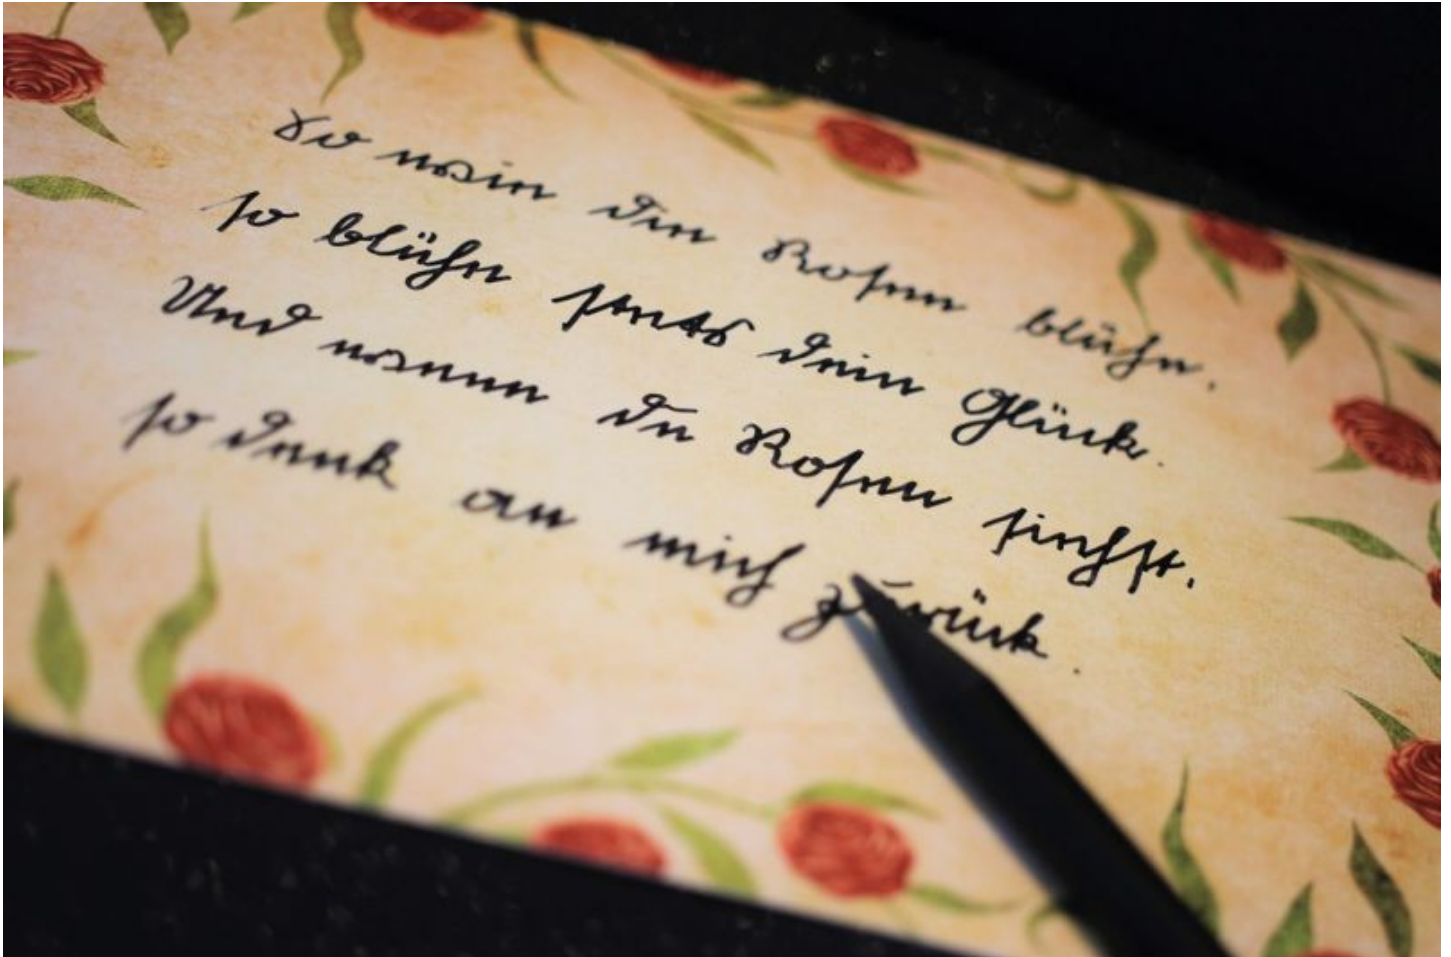 So wie die Rosen blühn.
so blühe stets dein Glück.
Und wenn du Rosen siehst.
so denk an mich zurück.